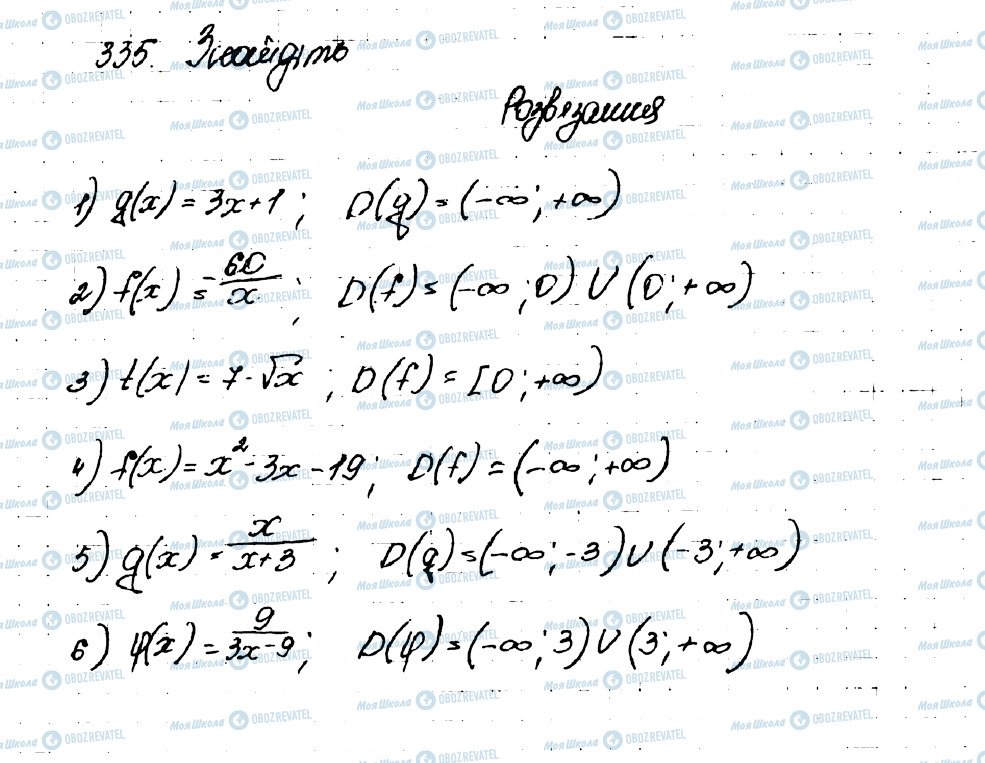 335. Знайдіть
Розвязання
1) g(x) = 3x+1 ; D(g) = (-∞; +∞)
2) f(x) = 60/x ; D(f) = (-∞; 0) ∪ (0; +∞)
3) t(x) = 7-√x ; D(f) = [0; +∞)
4) f(x) = x² - 3x - 19; D(f) = (-∞; +∞)
5) g(x) = x/(x+3) ; D(g) = (-∞; -3) ∪ (-3; +∞)
6) φ(x) = 9/(3x-9) ; D(φ) = (-∞; 3) ∪ (3; +∞)
Моя Школа OBOZREVATEL